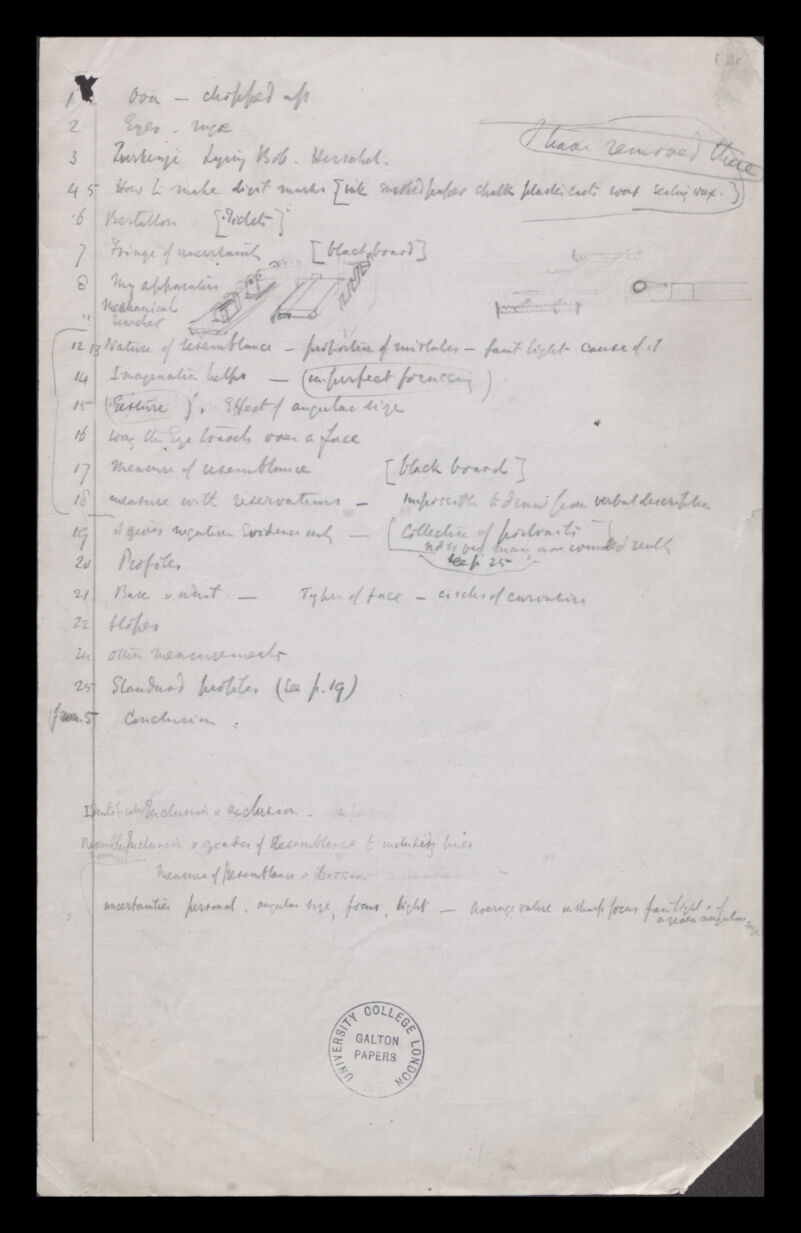 1 — chopped up
2 Eyes —
3 Purkenje Lying Bob. Herschel.
I have removed these
4 5 How to make digit marks [ink smoked paper chalk plaster casts wax sealing wax.]
6 Bertillon
7 Fringe of uncertainty [blackboard]
8 My apparatus
" Mechanical
Searcher
12 13 Nature of resemblance — proportion of mistakes — faint light cause of it
14 Imagination helps — (imperfect focussing)
15 Effect of angular size
16 way the Eye travels over a face
17 Measure of resemblance [black board]
18 measure with reservations — impossible to draw from verbal description
19 it gives negative Evidence only — (Collection of portraits
see p 25
20 Profiles
21 Base & unit — Types of face — circles of curvature
22 slopes
24 other measurements
25 Standard profiles (see p. 19)
5 Conclusion
Inclusion & exclusion.
Inclusion & grades of Resemblance to
Measure of Resemblance
uncertainties personal, angular size, focus, light — average value in sharp focus fair light & of
a given angular size
UNIVERSITY COLLEGE LONDON
GALTON
PAPERS